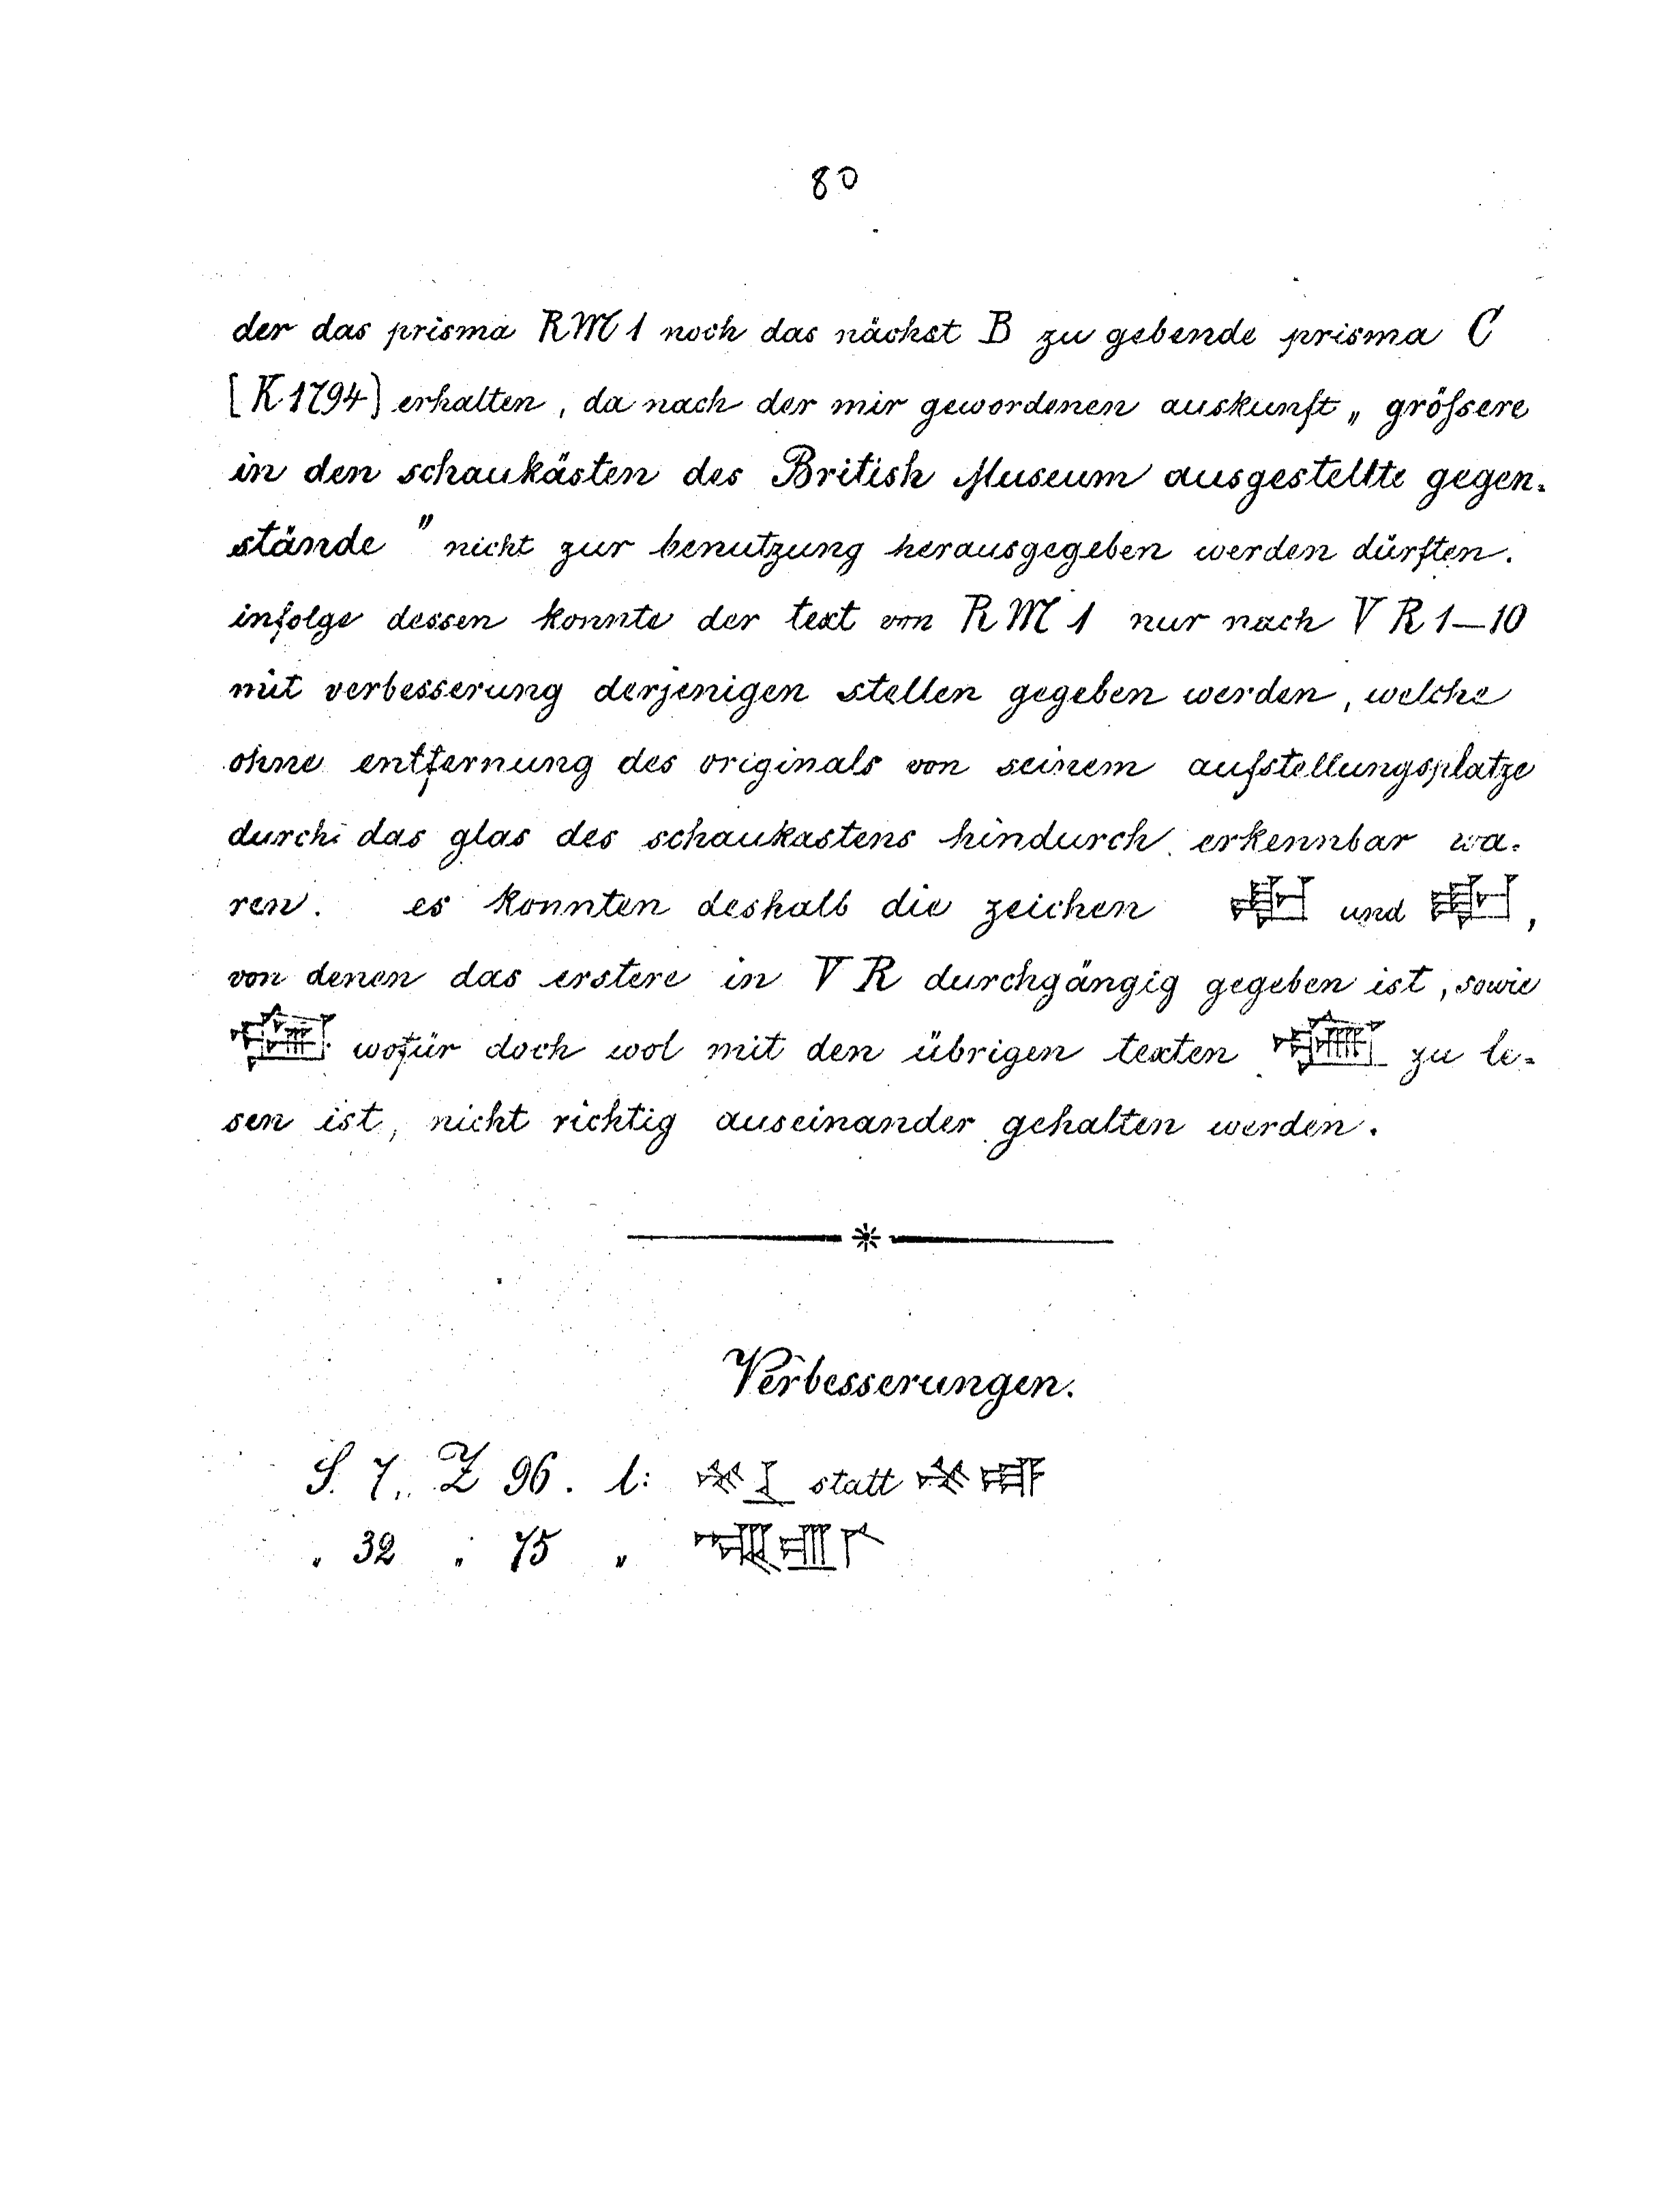 80
der das prisma RM 1 noch das nächst B zu gebende prisma C
[K 1794] erhalten, da nach der mir gewordenen auskunft „ größere
in den schaukästen des British Museum ausgestellte gegen-
stände " nicht zur benutzung herausgegeben werden dürften.
infolge dessen konnte der text von RM 1 nur nach V R 1—10
mit verbesserung derjenigen stellen gegeben werden, welche
ohne entfernung des originals von seinem aufstellungsplatze
durch das glas des schaukastens hindurch erkennbar wa-
ren. es konnten deshalb die zeichen und ,
von denen das erstere in V R durchgängig gegeben ist, sowie
wofür doch wol mit den übrigen texten zu le-
sen ist, nicht richtig auseinander gehalten werden.
Verbesserungen.
S. 7, Z 96. l: statt
„ 32 „ 75 „